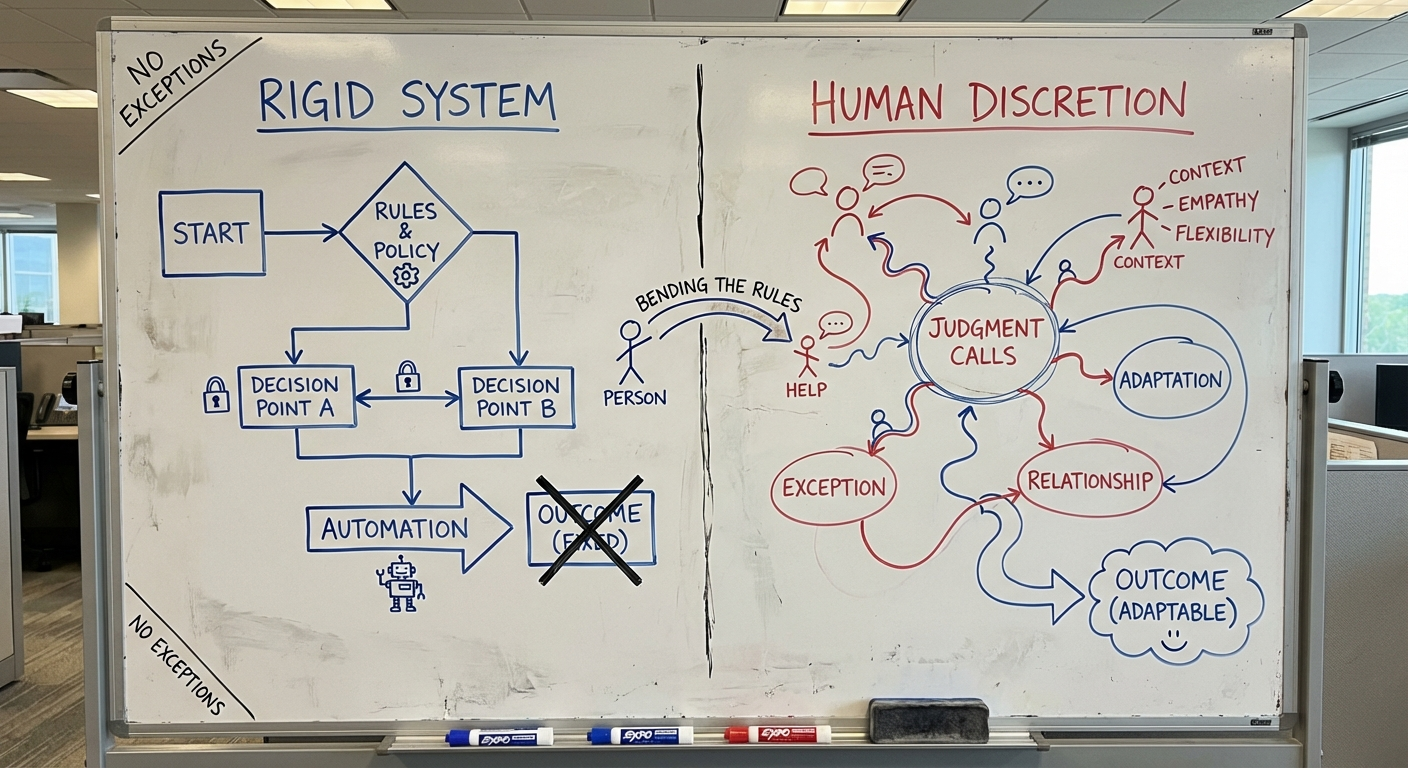 NO
EXCEPTIONS
RIGID SYSTEM
START
RULES
&
POLICY
DECISION
POINT A
DECISION
POINT B
AUTOMATION
OUTCOME
(FIXED)
NO EXCEPTIONS
BENDING THE RULES
PERSON
HUMAN DISCRETION
CONTEXT
- EMPATHY
FLEXIBILITY
CONTEXT
HELP
JUDGMENT
CALLS
ADAPTATION
EXCEPTION
RELATIONSHIP
OUTCOME
(ADAPTABLE)
EXPO
EXPO
EXPO